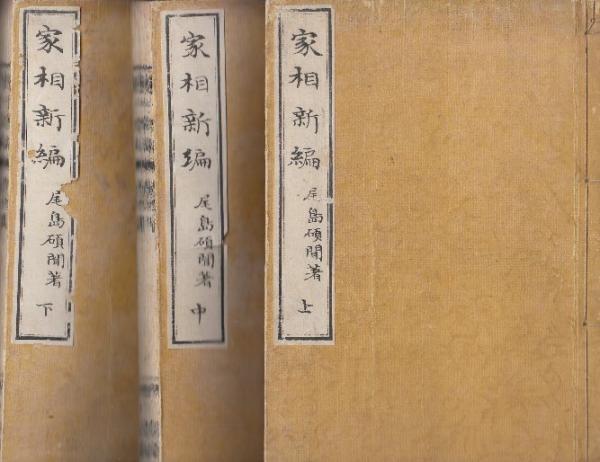 家相新編
尾島碩聞著
上
家相新編
尾島碩聞著
中
家相新編
尾島碩聞著
下